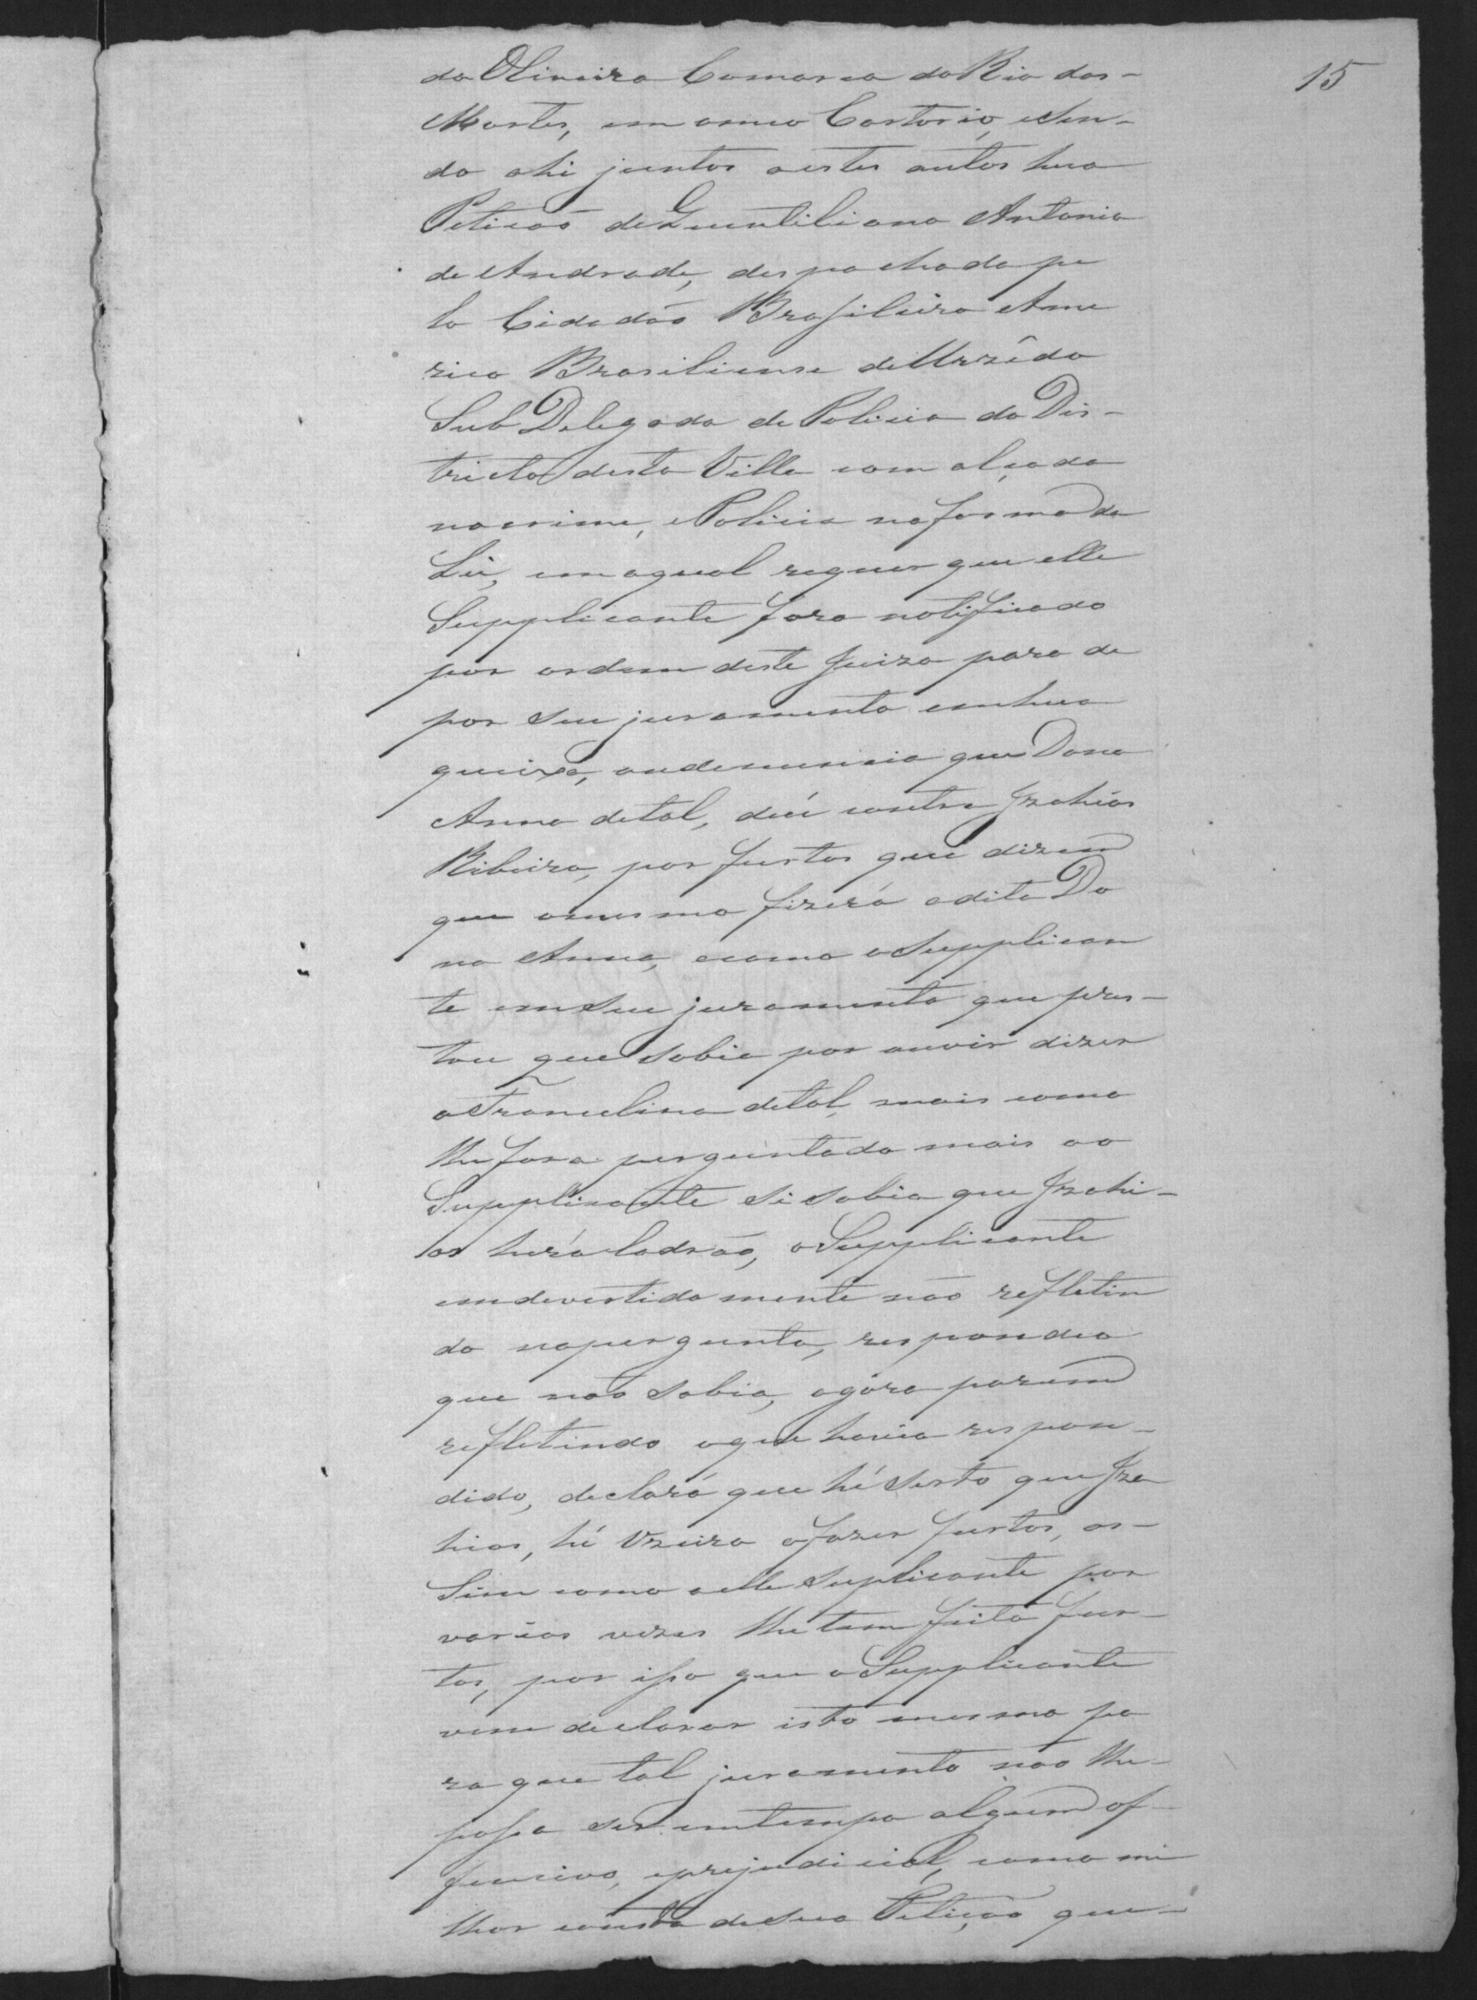 15
da Oliveira Comarca do Rio das-
Mortes, em o meu Cartorio, e sen-
do ahi junto a estes autos hua
Petição de Quintiliano Antonio
de Andrade, despachada pe
lo Cidadão Brasileiro Ame
rico Brasiliense de Urzêdo
Sub Delegado de Policia do Dis-
tricto desta Villa com alçada
no crime, e Policia na forma da
Lei, em a qual requer que elle
Supplicante fora notificado
por ordem deste Juizo para de
por seu juramento em hua
queixa, ou denuncia que Dona
Anna de tal, deu contra Izahias
Ribeiro, por furtos que dizem
que o mesmo fizera a dita Do
na Anna, e como o Supplican
te em seu juramento que pres-
tou que sabia por ouvir dizer
a Francelina de tal, mais como
lhe fora perguntado mais ao
Supplicante si sabia que Izahi-
as hera ladrão, o Supplicante
emdevertidamente não refletin
do na pergunta, respondeo
que não sabia, agora porem
refletindo o que havia respon-
dido, declara que hé serto que Iza
hias, hé Vzeiro a fazer furtos, as-
sim como a elle suplicante por
varias vezes lhe tem feito fur-
tos, por isso que o Supplicante
vem declarar isto mesmo pa
ra que tal juramento não lhe-
possa ser em tempo algum of-
fencivo, e prejudicial, como mi
lhor consta de sua Petição que-